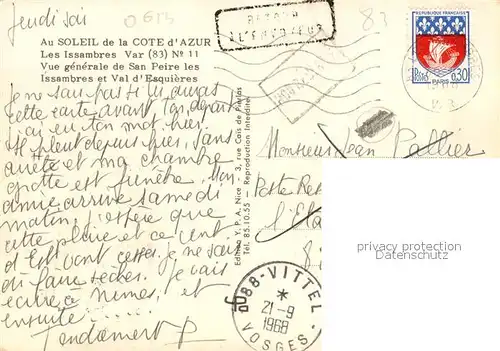 Jeudi soir
0613
RETOUR
A L'ENVOYEUR
83
Au SOLEIL de la COTE d'AZUR
Les Issambres Var (83) Nº 11
Vue générale de San Peire les
Issambres et Val d'Esquières
REPUBLIQUE FRANÇAISE
Postes 0,30
PARIS
Je ne sais pas si tu auras
cette carte avant ton départ
j'ai eu ton mot hier.
Il pleut depuis hier, sans
arrêt et ma chambre
grotte est funèbre. Mon
amie arrive samedi
matin, j'espère que
cette pluie et ce vent
d'Est vont cesser, je ne sais
où faire sécher. Je vais
écrire à Nimes, et
ensuite......
Tendament P
Edition Y. P. A. Nice - 3, rue Cais de Pierlas
Tél. 85.10.55 - Reproduction Interdite
Monsieur Jean Pallier
Poste Res
privacy protection
watermark
88-VITTEL
21-9
1968
VOSGES